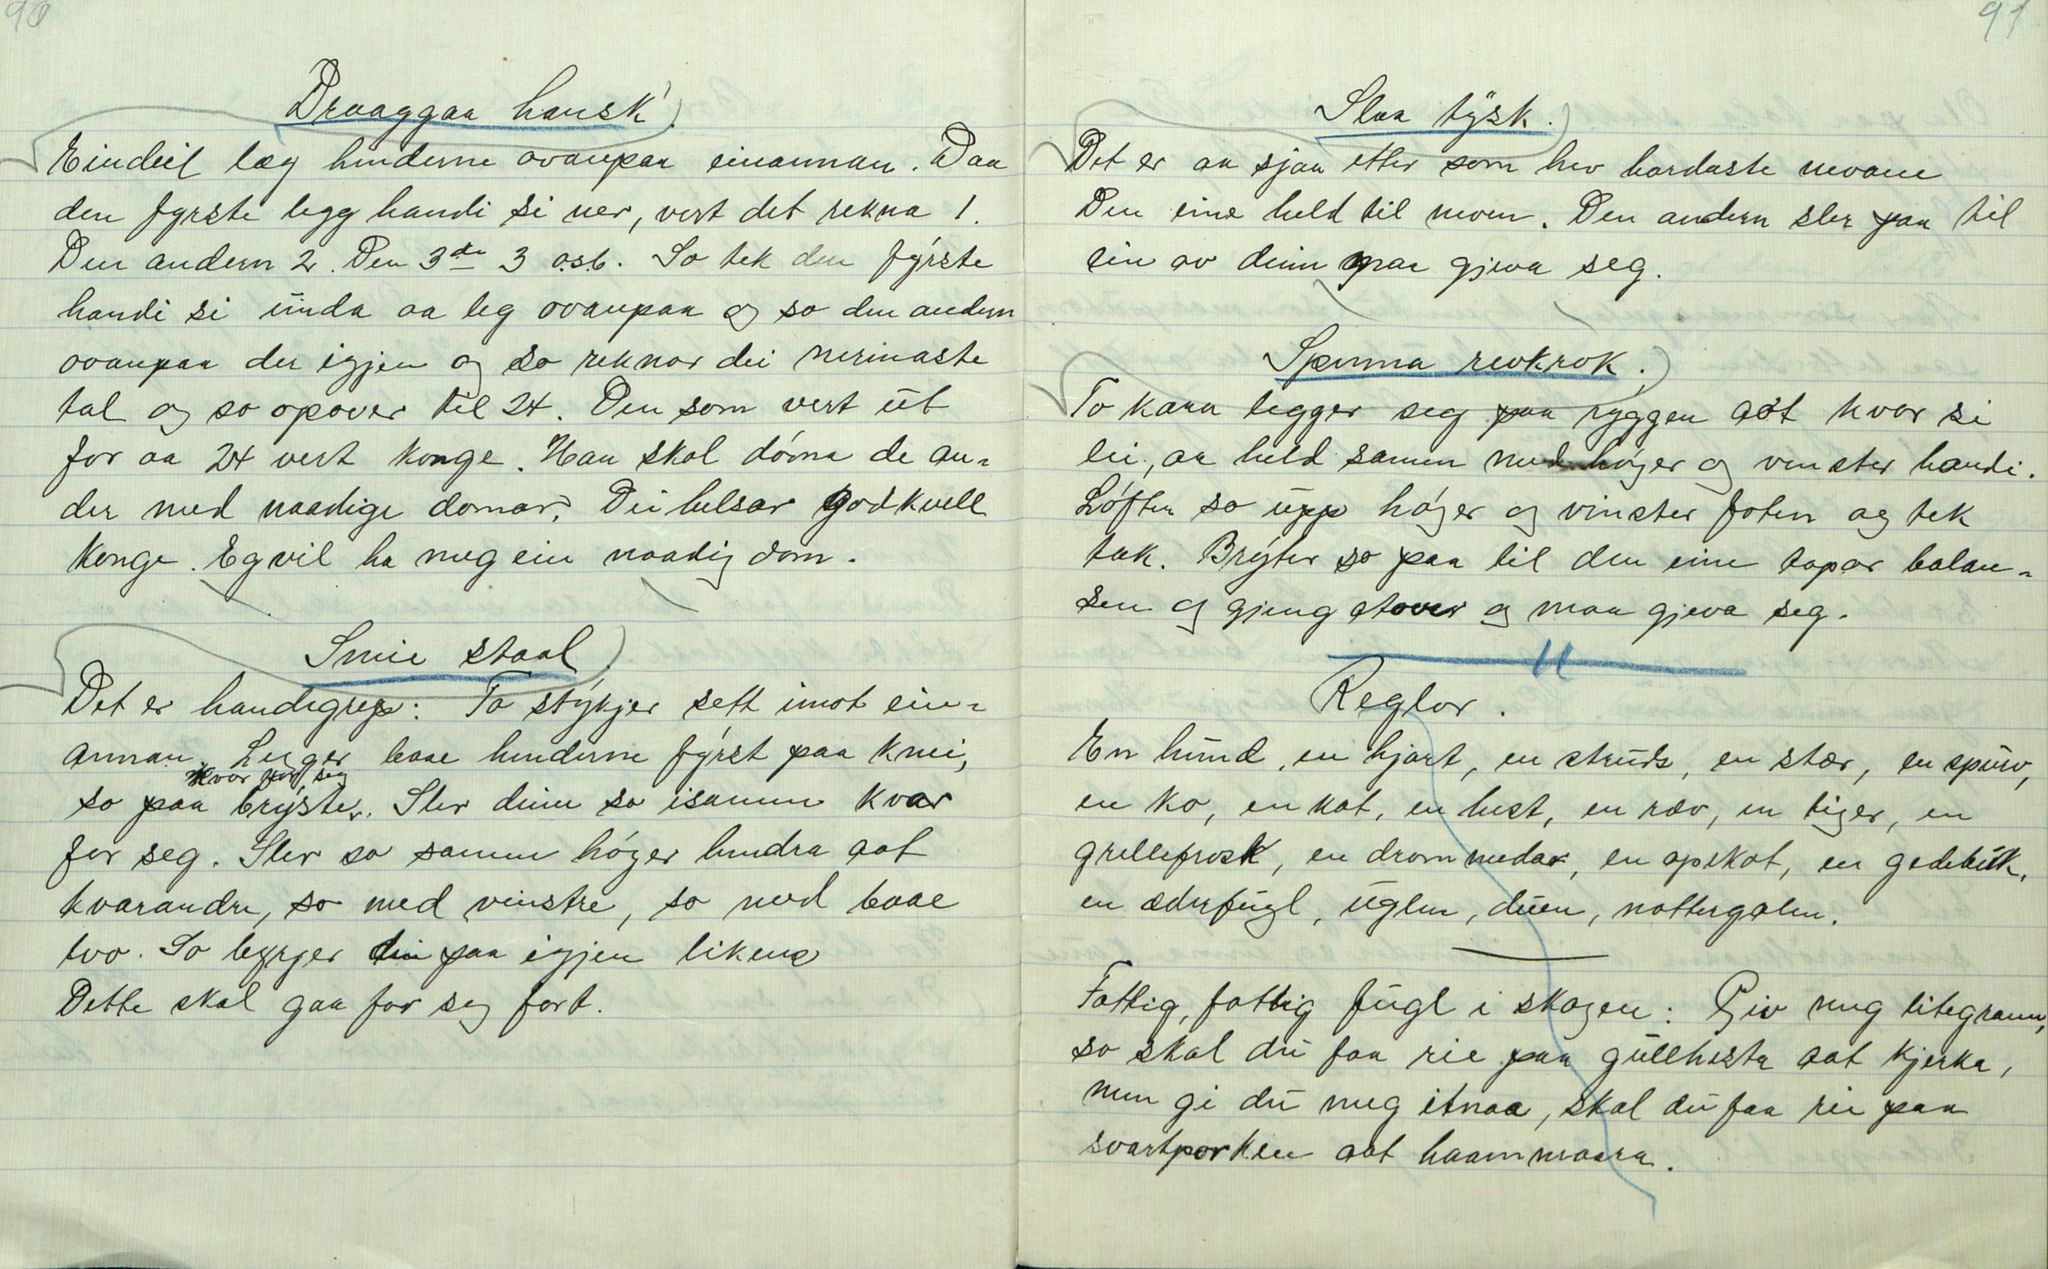 90
Draaggaa hansk.
Eindeil læg henderne ovanpaa einannan. Daa
den fyrste legg handi si ner, vert det rekna 1.
Den andern 2. Den 3de 3 o.s.b. So tek den fyrste
handi si unda aa leg ovanpaa og so den andern
ovanpaa der igjen og so reknar dei nerinaste
tal og so opover til 24. Den som vert ut
for aa 24 vert konge. Han skal dóma de an-
der med naadige domar. Dei helsar godkvell
konge. Eg vil ha meg ein naadig dom.
Smie staal
Det er handegrep: To stykjer sett imot ein-
annan. Legger baae henderne fyrst paa knei,
kvar for seg
so paa bryster. Sler deim so isamen kvar
for seg. Sler so samen hóger hendra aat
kvarandre, so med vinstre, so med baae
tvo. So byrjer dei paa igjen likens
Dette skal gaa for seg fort.
91
Slaa tysk.
Det er aa sjaa etter som hev hardaste nevane
Den eine held til neven. Den andern sler paa til
ein av deim maa gjeva seg.
Spenna revkrok.
To kara legger seg paa ryggen aat kvar si
lei, aa held samen med hóger og venster handi.
Lófter so upp hóger og vinster foten og tek
tak. Bryter so paa til den eine tapar balan-
sen og gjeng stover og maa gjeva seg.
Reglor.
En hund, en hjort, en struds, en stær, en spurv,
en ko, en kat, en hest, en ræv, en tiger, en
grellefrosk, en drommedar, en apekat, en gedebuk,
en æderfugl, uglen, duen, nattergalen.
Fattig, fattig fugl i skogen: Giv meg litegrann,
so skal du faa rie paa gullhesta aat kjerka,
men gi du meg itnaa, skal du faa rie paa
svartporken aat haammaara.